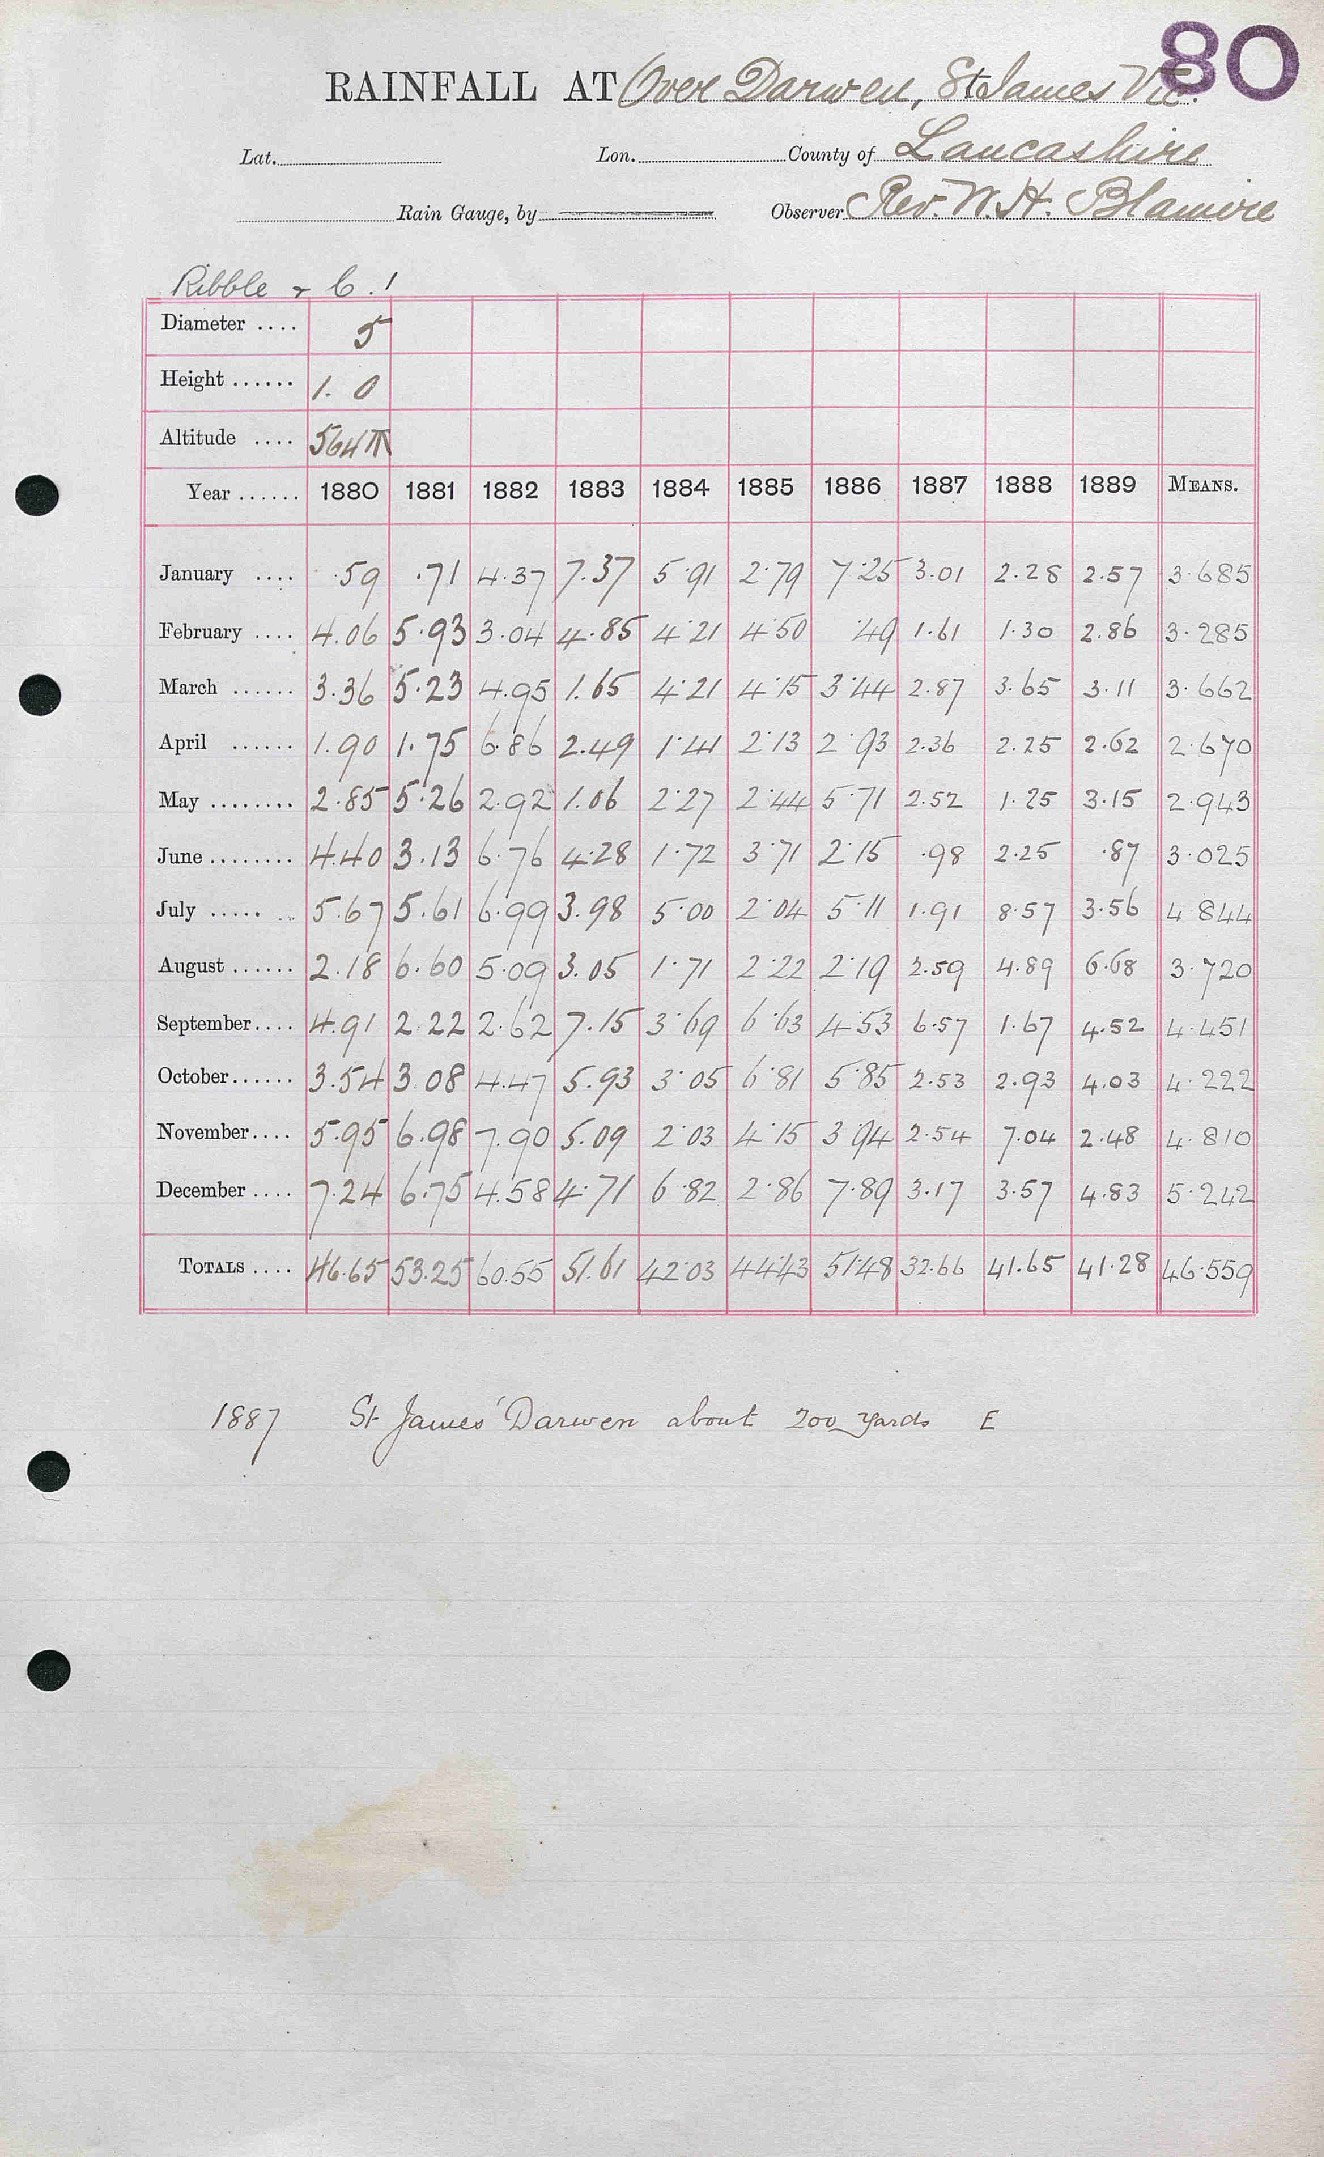 80
RAINFALL AT Over Darwen, St James Vic.
Lat. Lon. County of Lancashire
Rain Gauge, by Observer Rev. W. H. Blamire
Ribble & C. 1
Diameter .... 5
Height ...... 1. 0
Altitude .... 564 T
Year ...... 1880 1881 1882 1883 1884 1885 1886 1887 1888 1889 MEANS.
January .... .59 .71 4.37 7.37 5.91 2.79 7.25 3.01 2.28 2.57 3.685
February .... 4.06 5.93 3.04 4.85 4.21 4.50 .49 1.61 1.30 2.86 3.285
March ...... 3.36 5.23 4.95 1.65 4.21 4.15 3.44 2.87 3.65 3.11 3.662
April ...... 1.90 1.75 6.86 2.49 1.41 2.13 2.93 2.36 2.25 2.62 2.670
May ........ 2.85 5.26 2.92 1.06 2.27 2.44 5.71 2.52 1.25 3.15 2.943
June ........ 4.40 3.13 6.76 4.28 1.72 3.71 2.15 .98 2.25 .87 3.025
July ..... .. 5.67 5.61 6.99 3.98 5.00 2.04 5.11 1.91 8.57 3.56 4.844
August ...... 2.18 6.60 5.09 3.05 1.71 2.22 2.19 2.59 4.89 6.68 3.720
September .... 4.91 2.22 2.62 7.15 3.69 6.63 4.53 6.57 1.67 4.52 4.451
October ...... 3.54 3.08 4.47 5.93 3.05 6.81 5.85 2.53 2.93 4.03 4.222
November .... 5.95 6.98 7.90 5.09 2.03 4.15 3.94 2.54 7.04 2.48 4.810
December .... 7.24 6.75 4.58 4.71 6.82 2.86 7.89 3.17 3.57 4.83 5.242
TOTALS .... 46.65 53.25 60.55 51.61 42.03 44.43 51.48 32.66 41.65 41.28 46.559
1887 St James' Darwen about 200 yards E